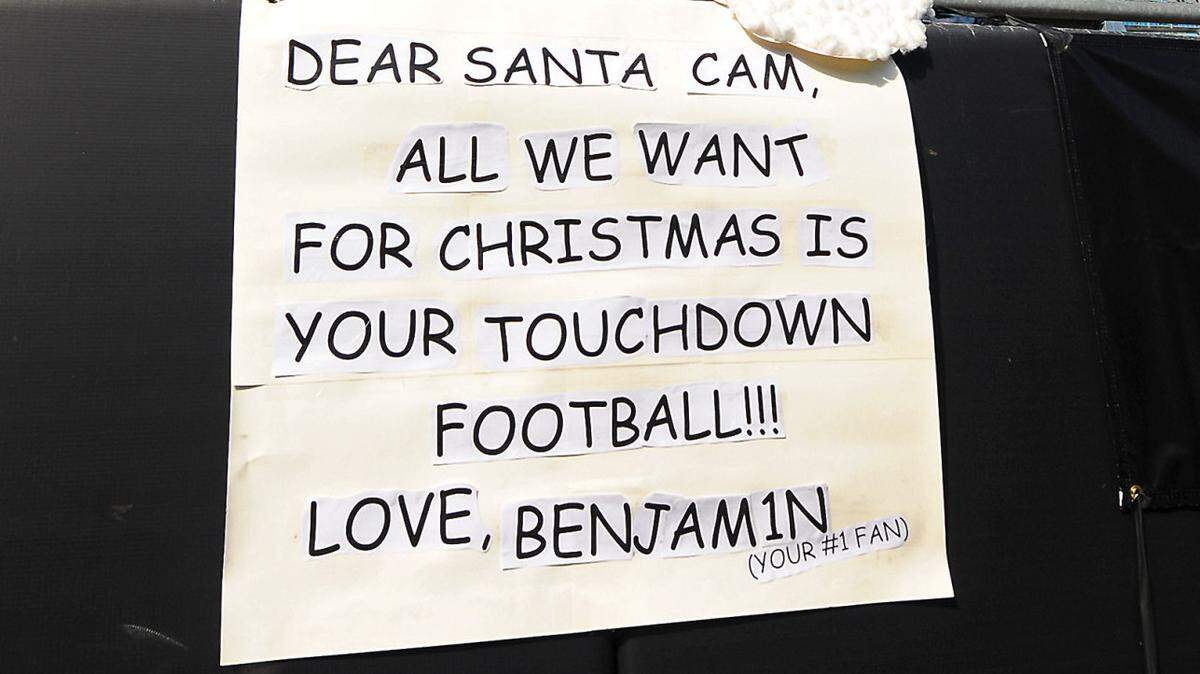 DEAR SANTA CAM,
ALL WE WANT
FOR CHRISTMAS IS
YOUR TOUCHDOWN
FOOTBALL!!!
LOVE, BENJAM1N
(YOUR #1 FAN)